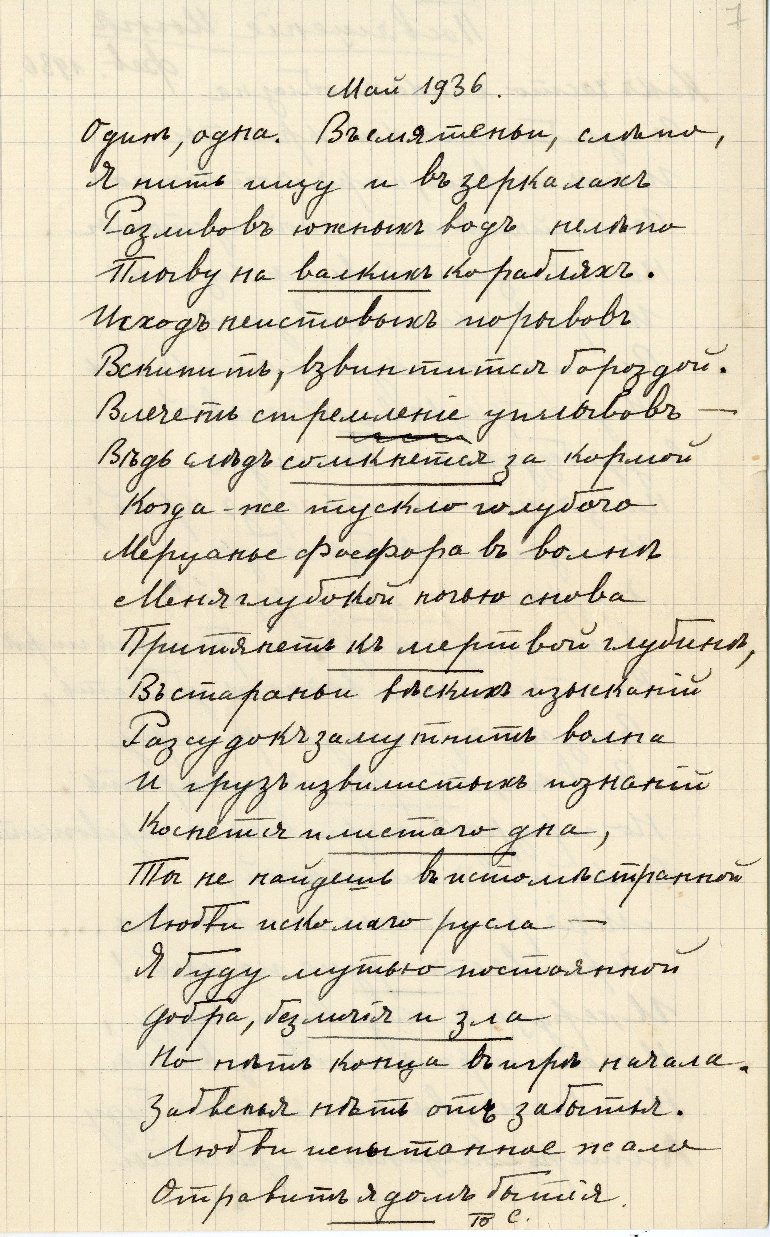 7
Май 1936.
Одинъ, одна. Въ смятеньи, слѣпо,
Я нить ищу и въ зеркалахъ
Разливовъ южныхъ водъ нелѣпо
Плыву на валкихъ корабляхъ.
Исходъ неистовыхъ порывовъ
Вскипитъ, взвинтится бороздой.
Влечетъ стремленіе уплывовъ —
Вѣдь слѣдъ сомкнется за кормой
Когда-же тускло голубого
Мерцанье фосфора въ волнѣ
Меня глубокой ночью снова
Притянетъ къ мертвой глубинѣ,
Въ стараньи вѣскихъ изысканій
Разсудокъ замутнитъ волна
И грузъ извилистыхъ познаній
Коснется илистаго дна,
Ты не найдешь въ истомѣ странной
Любви искомаго русла —
Я буду мутью постоянной
Добра, безличія и зла
Но нѣтъ конца въ игрѣ начала.
Забвенья нѣтъ отъ забытья.
Любви испытанное жало
Отравитъ ядомъ бытія.
С.